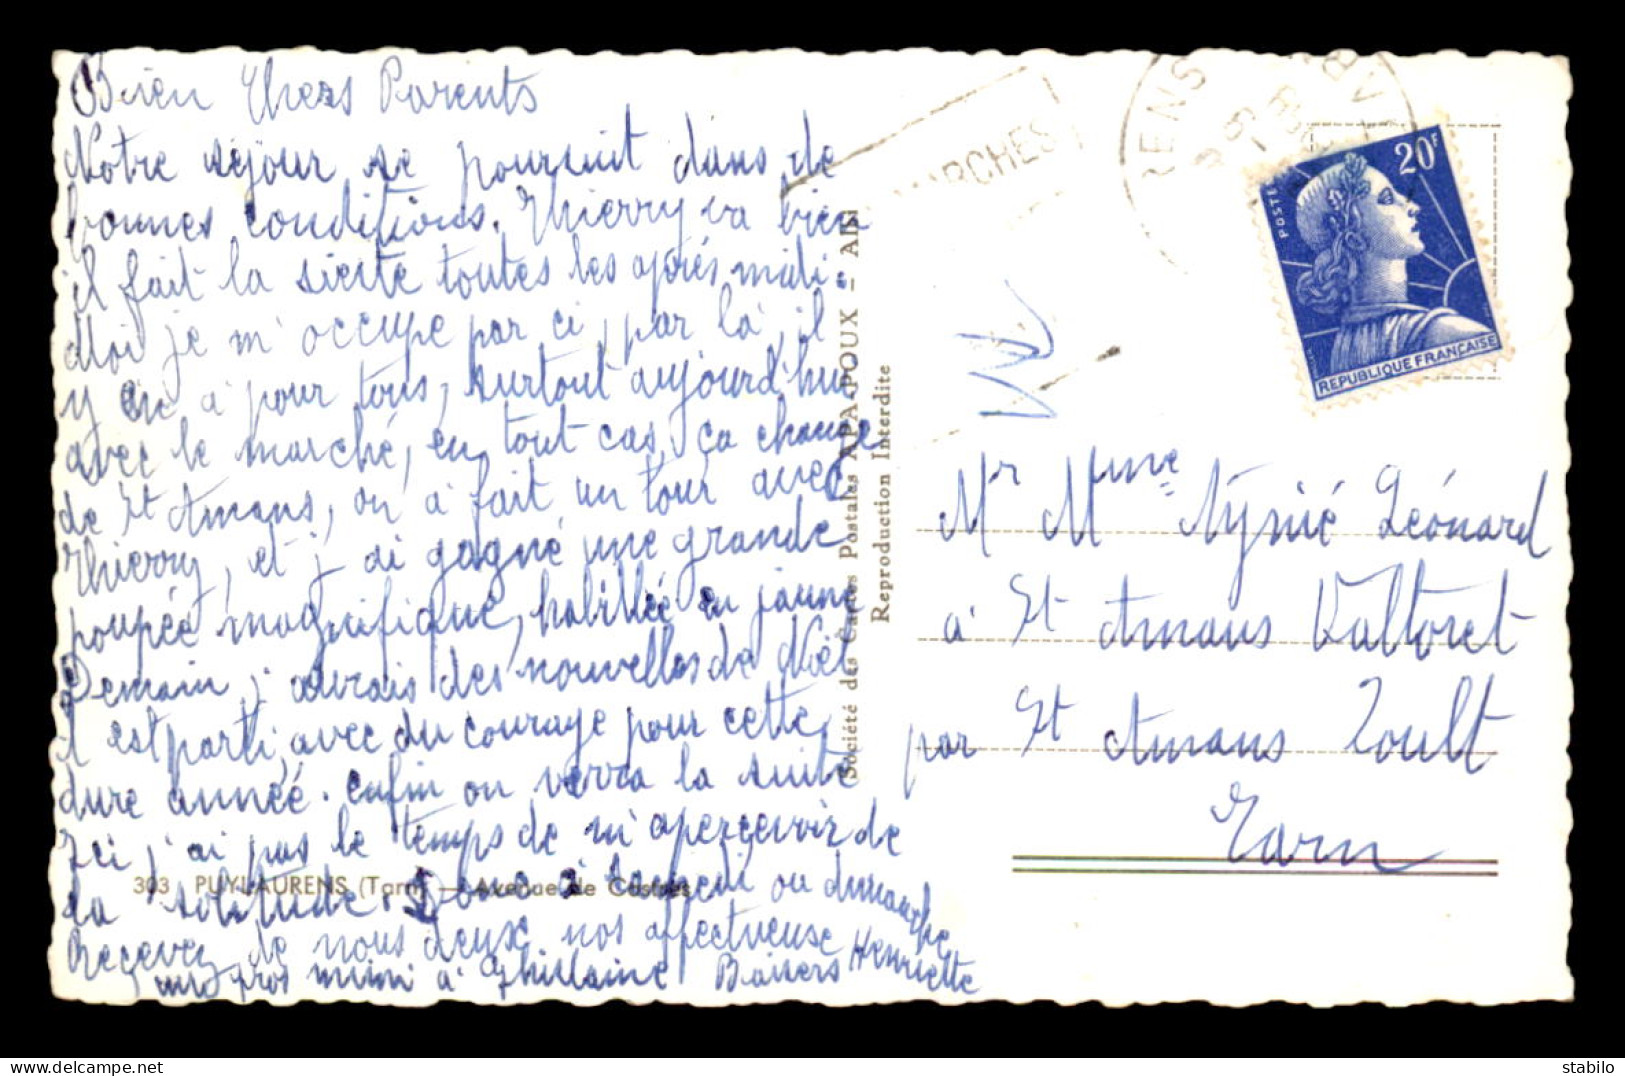 Bien Chers Parents
Notre séjour se poursuit dans de
bonnes conditions. Thierry va bien
il fait la sieste toutes les après midi.
Moi je m'occupe par ci, par là, il
y en a pour tous, surtout aujourd'hui
avec le marché, en tout cas, ça change
de St Amans, on a fait un tour avec
Thierry, et j'ai gagné une grande
poupée magnifique, habillée en jaune
Demain j'aurais des nouvelles de Noël
il est parti, avec du courage pour cette
dure année. enfin on verra la suite
Ici j'ai pas le temps de m'apercevoir de
la solitude. Donc à samedi ou dimanche
Recevez de nous deux nos affectueuse
un gros mimi à Ghislaine Baisers Henriette
303 PUYLAURENS (Tarn) — Avenue de Castres
(Société des Cartes Postales APA-POUX - ALBI
Reproduction Interdite
MARCHES
RENS
POSTES
20F
REPUBLIQUE FRANÇAISE
Mr Mme Léonard
à St Amans Valtoret
par St Amans Soult
Tarn
slabfile.delcampe.net